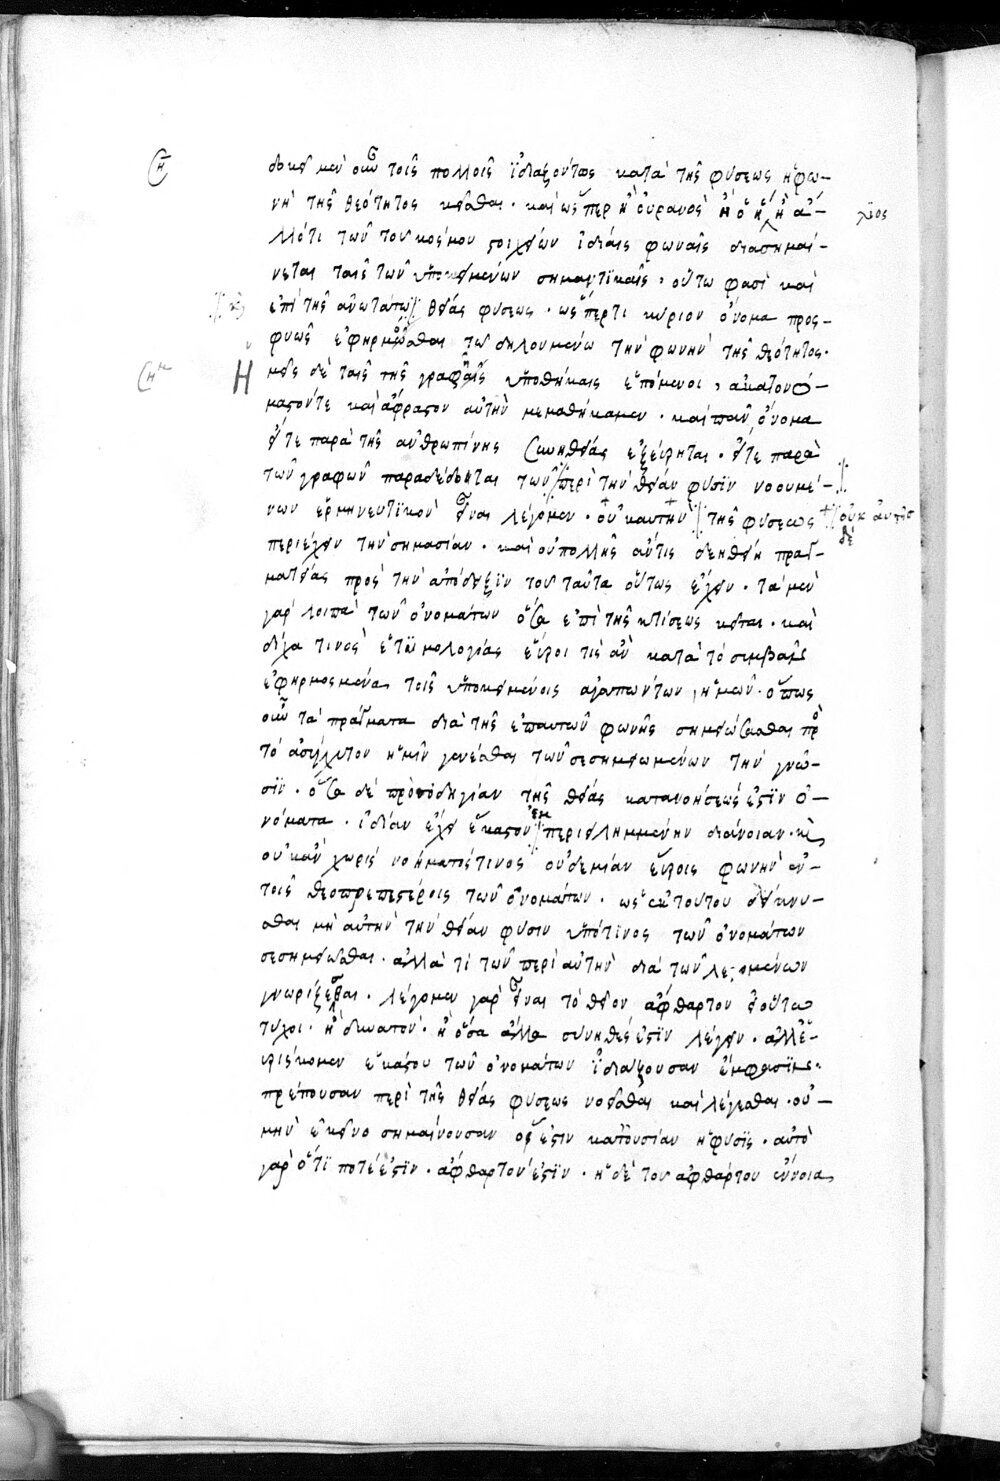 δοκεῖ μὲν οὖν τοῖς πολλοῖς ἰδιαζόντως κατὰ τῆς φύσεως ἡ φω-
νὴ τῆς θεότητος κεῖσθαι · καὶ ὥσπερ ἢ οὐρανὸς ἢ ὁ ἥ ἢ ἀ-
λιος
λλότι τῶν τοῦ κόσμου στοιχείων ἰδίαις φωναῖς διασημαί-
νεται ταῖς τῶν ὑποκειμένων σημαντικαῖς, οὕτω φασὶ καὶ
ἐπὶ τῆς ἀνωτάτω θείας φύσεως · ὥσπερ τι κύριον ὄνομα προς-
φυῶς ἐφηρμόσθαι τῷ δηλουμένῳ τὴν φωνὴν τῆς θεότητος.
Ἡ μεῖς δὲ ταῖς τῆς γραφῆς ὑποθήκαις ἑπόμενοι, ἀκατονό-
μαστόν τε καὶ ἄφραστον αὐτὴν μεμαθήκαμεν · καὶ πᾶν ὄνομα
εἴτε παρὰ τῆς ἀνθρωπίνης συνηθείας ἐξεύρηται · εἴτε παρὰ
τῶν γραφῶν παραδέδοται τῶν περὶ τὴν θείαν φύσιν νοουμέ-
νων ἑρμηνευτικὸν εἶναι λέγομεν · οὐκ αὐτὴν τῆς φύσεως
οὐκ αὐτῆς δὲ
περιέχειν τὴν σημασίαν · καὶ οὐ πολλῆς ἄν τις δεηθείη πραγ-
ματείας πρὸς τὴν ἀπόδειξιν τοῦ ταῦτα οὕτως ἔχειν · τὰ μὲν
γὰρ λοιπὰ τῶν ὀνομάτων ὅσα ἐπὶ τῆς κτίσεως κεῖται · καὶ
δίχα τινὸς ἐτυμολογίας εὕροι τις ἂν κατὰ τὸ συμβὰν
ἐφηρμοσμένα τοῖς ὑποκειμένοις ἀγαπώντων ἡμῶν · ὅπως
οὖν τὰ πράγματα διὰ τῆς ἐπ αὐτῶν φωνῆς σημειώσασθαι πρὸ
τὸ ἀσύγχυτον ἡμῖν γενέσθαι τῶν σεσημειωμένων τὴν γνῶ-
σιν · ὅσα δὲ πρὸς ὁδηγίαν τῆς θείας κατανοήσεώς ἐστιν ὀ-
νόματα · ἰδίαν ἔχει ἕκαστον ἐμπεριειλημμένην διάνοιαν · καὶ
οὐκ ἂν χωρὶς νοήματός τινος οὐδεμίαν εὕροις φωνὴν ἐν
τοῖς θεοπρεπεστέροις τῶν ὀνομάτων · ὡς ἐκ τούτου δείκνυ-
σθαι μὴ αὐτὴν τὴν θείαν φύσιν ὑπό τινος τῶν ὀνομάτων
σεσημειῶσθαι · ἀλλὰ τί τῶν περὶ αὐτὴν διὰ τῶν λεγομένων
γνωρίζεσθαι · λέγομεν γὰρ εἶναι τὸ θεῖον ἄφθαρτον εἰ οὕτω
τύχοι · ἢ δυνατόν · ἢ ὅσα ἄλλα σύνηθές ἐστιν λέγειν · ἀλλ εὑ-
ρίσκομεν ἑκάστου τῶν ὀνομάτων ἰδιάζουσαν ἔμφασιν ·
πρέπουσαν περὶ τῆς θείας φύσεως νοεῖσθαι καὶ λέγεσθαι · οὐ
μὴν ἐκεῖνο σημαίνουσαν ὅ ἐστιν κατ οὐσίαν ἡ φύσις · αὐτὸ
γὰρ ὅτι ποτέ ἐστιν · ἄφθαρτόν ἐστιν · ἡ δὲ τοῦ ἀφθάρτου ἔννοια